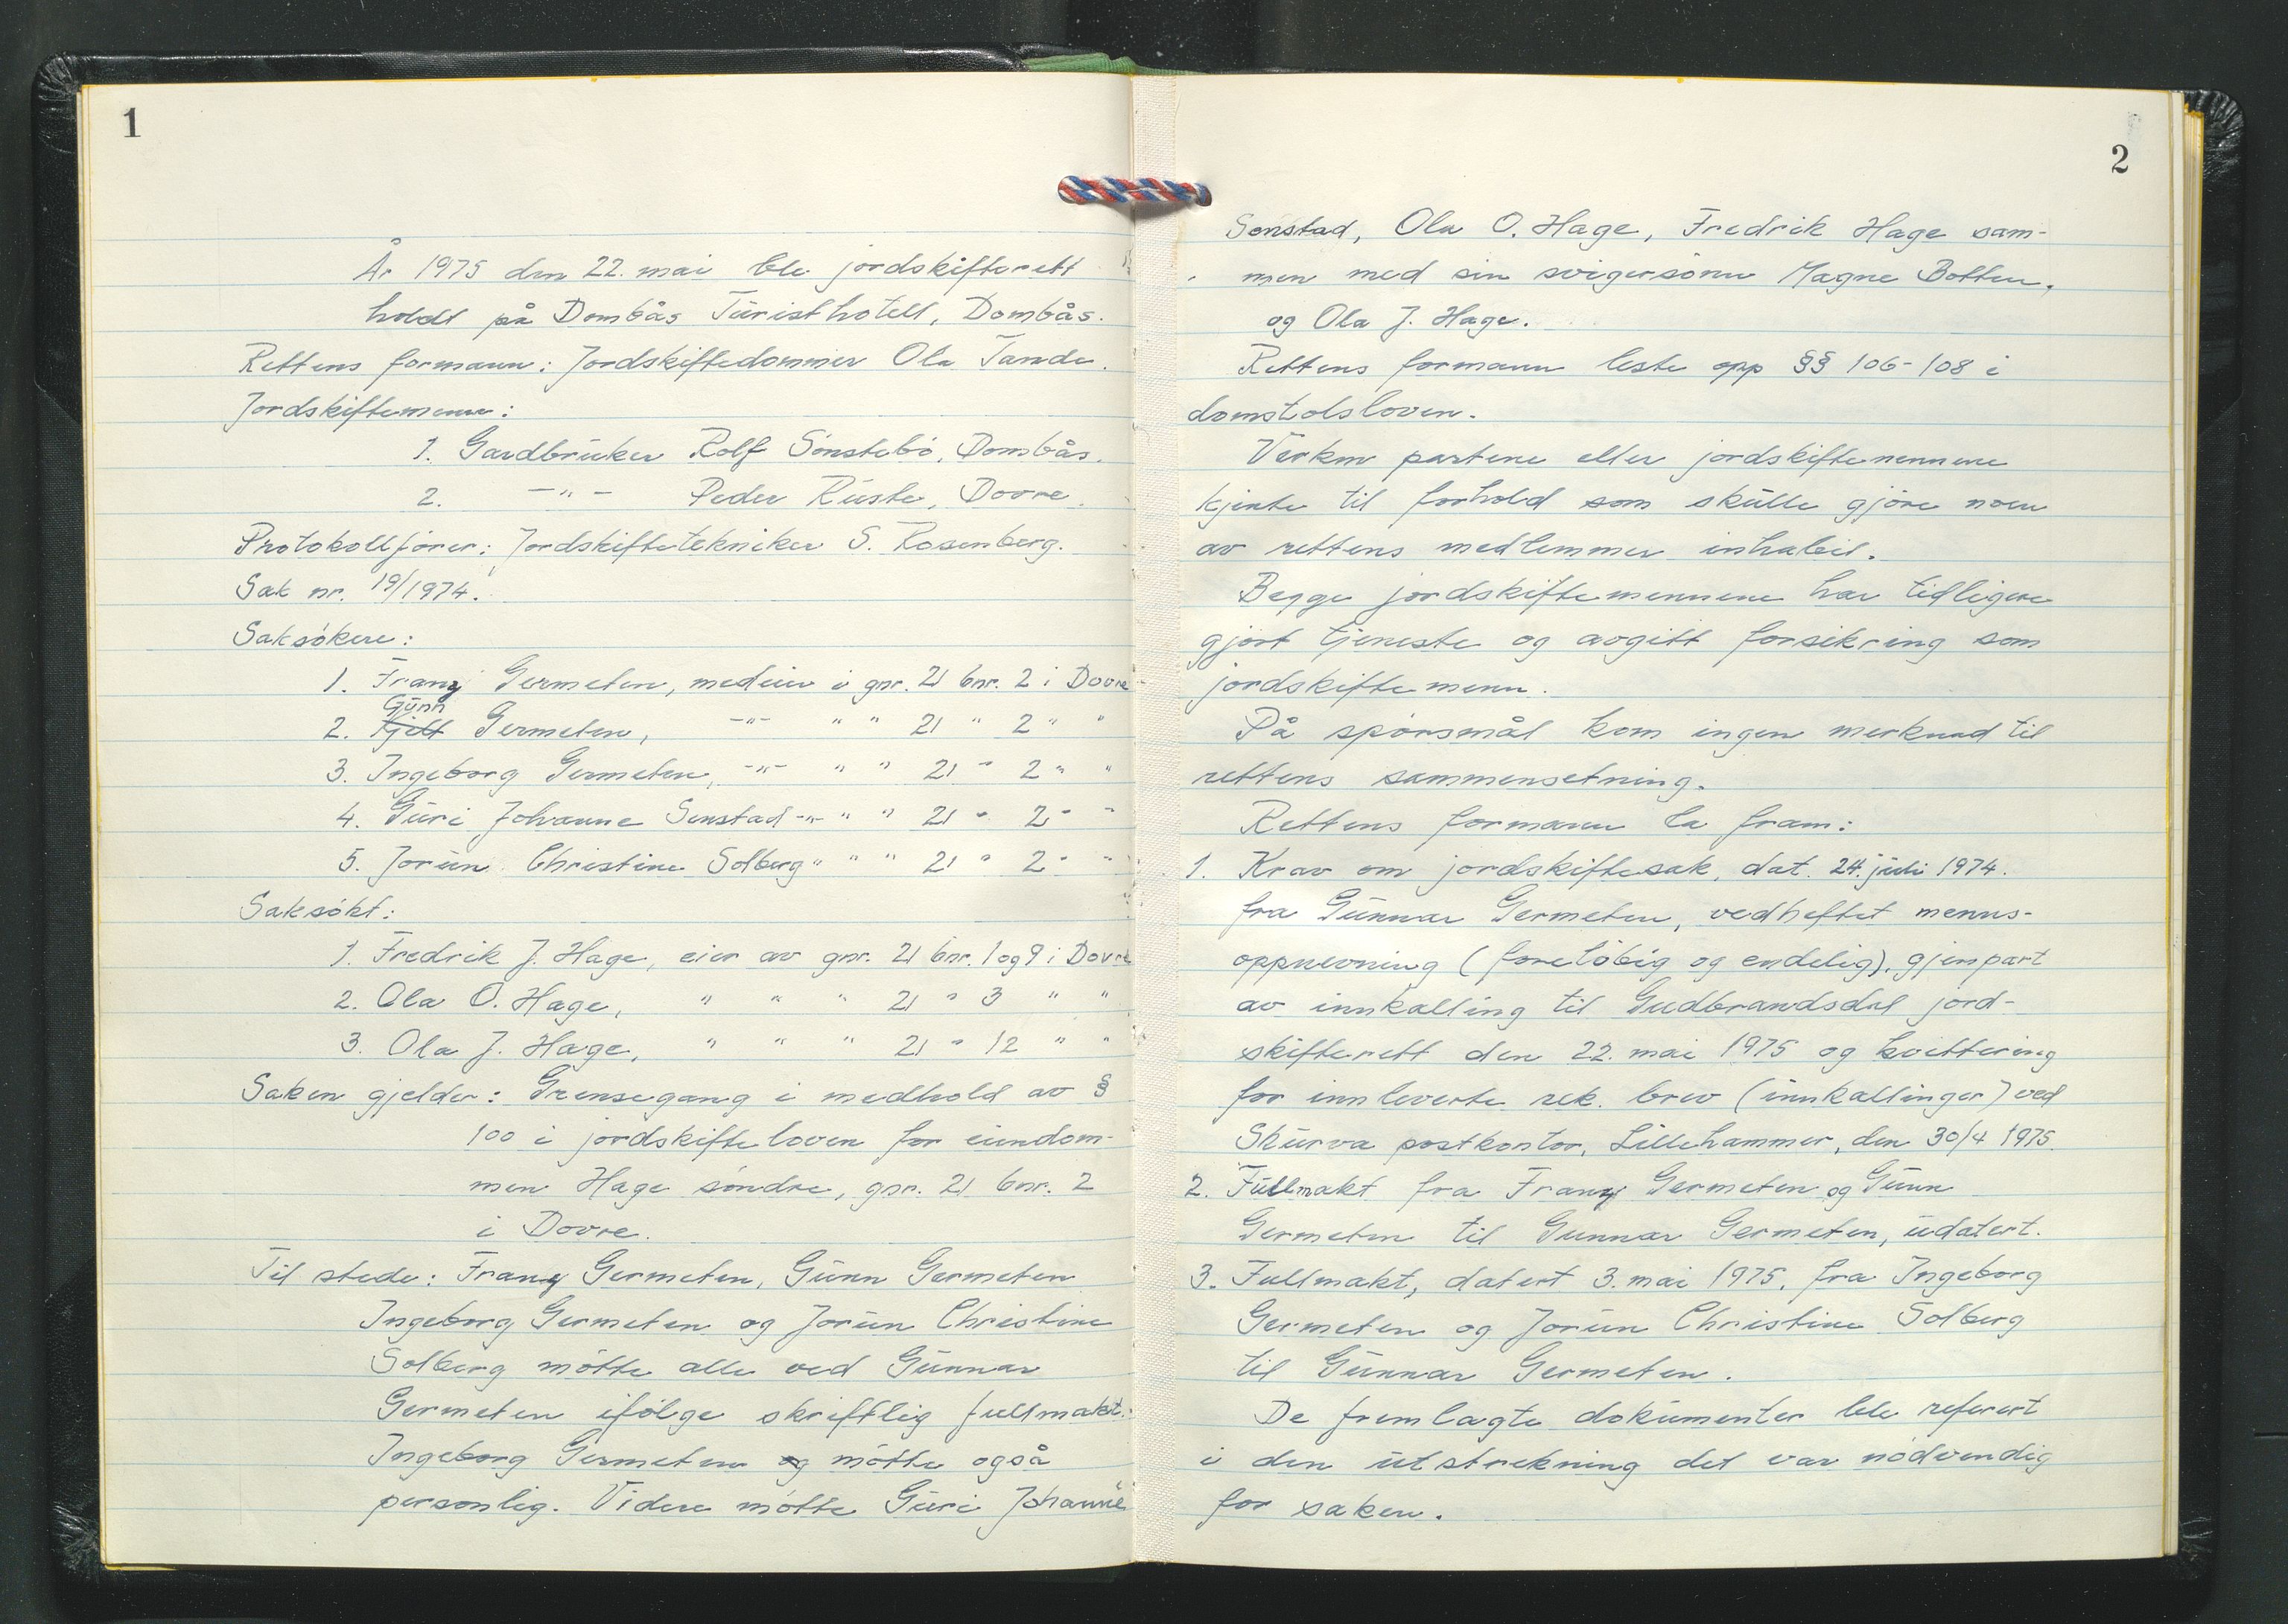 1
År 1975 den 22. mai ble jordskifterett
holdt på Dombås Turisthotell, Dombås.
Rettens formann: Jordskiftedommer Ola Tande.
Jordskiftemenn:
1. Gardbruker Rolf Sønstebø, Dombås.
2. -"- Peder Ruste, Dovre.
Protokollfører: Jordskiftetekniker S. Rosenberg.
Sak nr. 19/1974.
Saksøkere:
1. Franz Germeten, medeier i gnr. 21 bnr. 2 i Dovre
Gunn
2. Kjell Germeten, -"- " " 21 " 2 " "
3. Ingeborg Germeten, -"- " " 21 " 2 " "
4. Guri Johanne Sønstad -"- " " 21 " 2 " "
5. Jorun Christine Solberg " " " 21 " 2 " "
Saksøkt:
1. Fredrik J. Hage, eier av gnr. 21 bnr. 1 og 9 i Dovre
2. Ola O. Hage, " " " 21 " 3 " "
3. Ola J. Hage, " " " 21 " 12 " "
Saken gjelder: Grensegang i medhold av §
100 i jordskifteloven for eiendom-
men Hage søndre, gnr. 21 bnr. 2
i Dovre.
Til stede: Franz Germeten, Gunn Germeten
Ingeborg Germeten og Jorun Christine
Solberg møtte alle ved Gunnar
Germeten ifølge skriftlig fullmakt.
Ingeborg Germeten og møtte også
personlig. Videre møtte Guri Johanne
2
Sønstad, Ola O. Hage, Fredrik Hage sam-
men med sin svigersønn Magne Botten,
og Ola J. Hage.
Rettens formann leste opp §§ 106-108 i
domstolsloven.
Verken partene eller jordskiftemennene
kjente til forhold som skulle gjøre noen
av rettens medlemmer inhabil.
Begge jordskiftemennene har tidligere
gjort tjeneste og avgitt forsikring som
jordskiftemenn.
På spørsmål kom ingen merknad til
rettens sammensetning.
Rettens formann la fram:
1. Krav om jordskiftesak, dat. 24. juli 1974.
fra Gunnar Germeten, vedheftet menns-
oppnevning (foreløbig og endelig), gjenpart
av innkalling til Gudbrandsdal jord-
skifterett den 22. mai 1975 og kvittering
for innleverte rek. brev (innkallinger) ved
Skurva postkontor, Lillehammer, den 30/4 1975.
2. Fullmakt fra Franz Germeten og Gunn
Germeten til Gunnar Germeten, udatert.
3. Fullmakt, datert 3. mai 1975, fra Ingeborg
Germeten og Jorun Christine Solberg
til Gunnar Germeten.
De fremlagte dokumenter ble referert
i den utstrekning det var nødvendig
for saken.